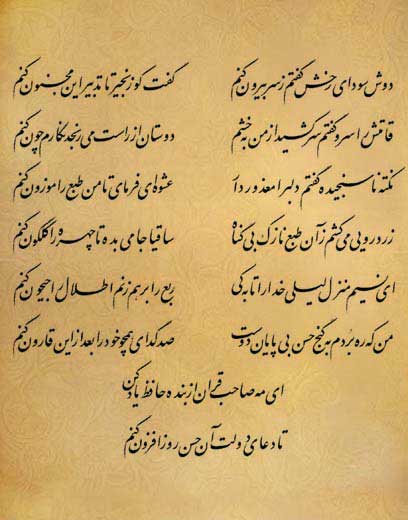 دوش سودای رخش گفتم ز سر بیرون کنم گفت کو زنجیر تا تدبیر این مجنون کنم
قامتش را سرو گفتم سر کشید از من به خشم دوستان از راست می رنجد نگارم چون کنم
نکته ناسنجیده گفتم دلبرا معذور دار عشوه ای فرمای تا من طبع را موزون کنم
زردرویی می کشم زآن طبع نازک بی گناه ساقیا جامی بده تا چهره را گلگون کنم
ای نسیم منزل لیلی خدا را تا به کی ربع را برهم زنم اطلال را جیحون کنم
من که ره بُردم به گنج حسن بی پایان دوست صد گدای همچو خود را بعد از این قارون کنم
ای مه صاحب قران از بنده حافظ یاد کن
تا دعای دولت آن حسن روز افزون کنم